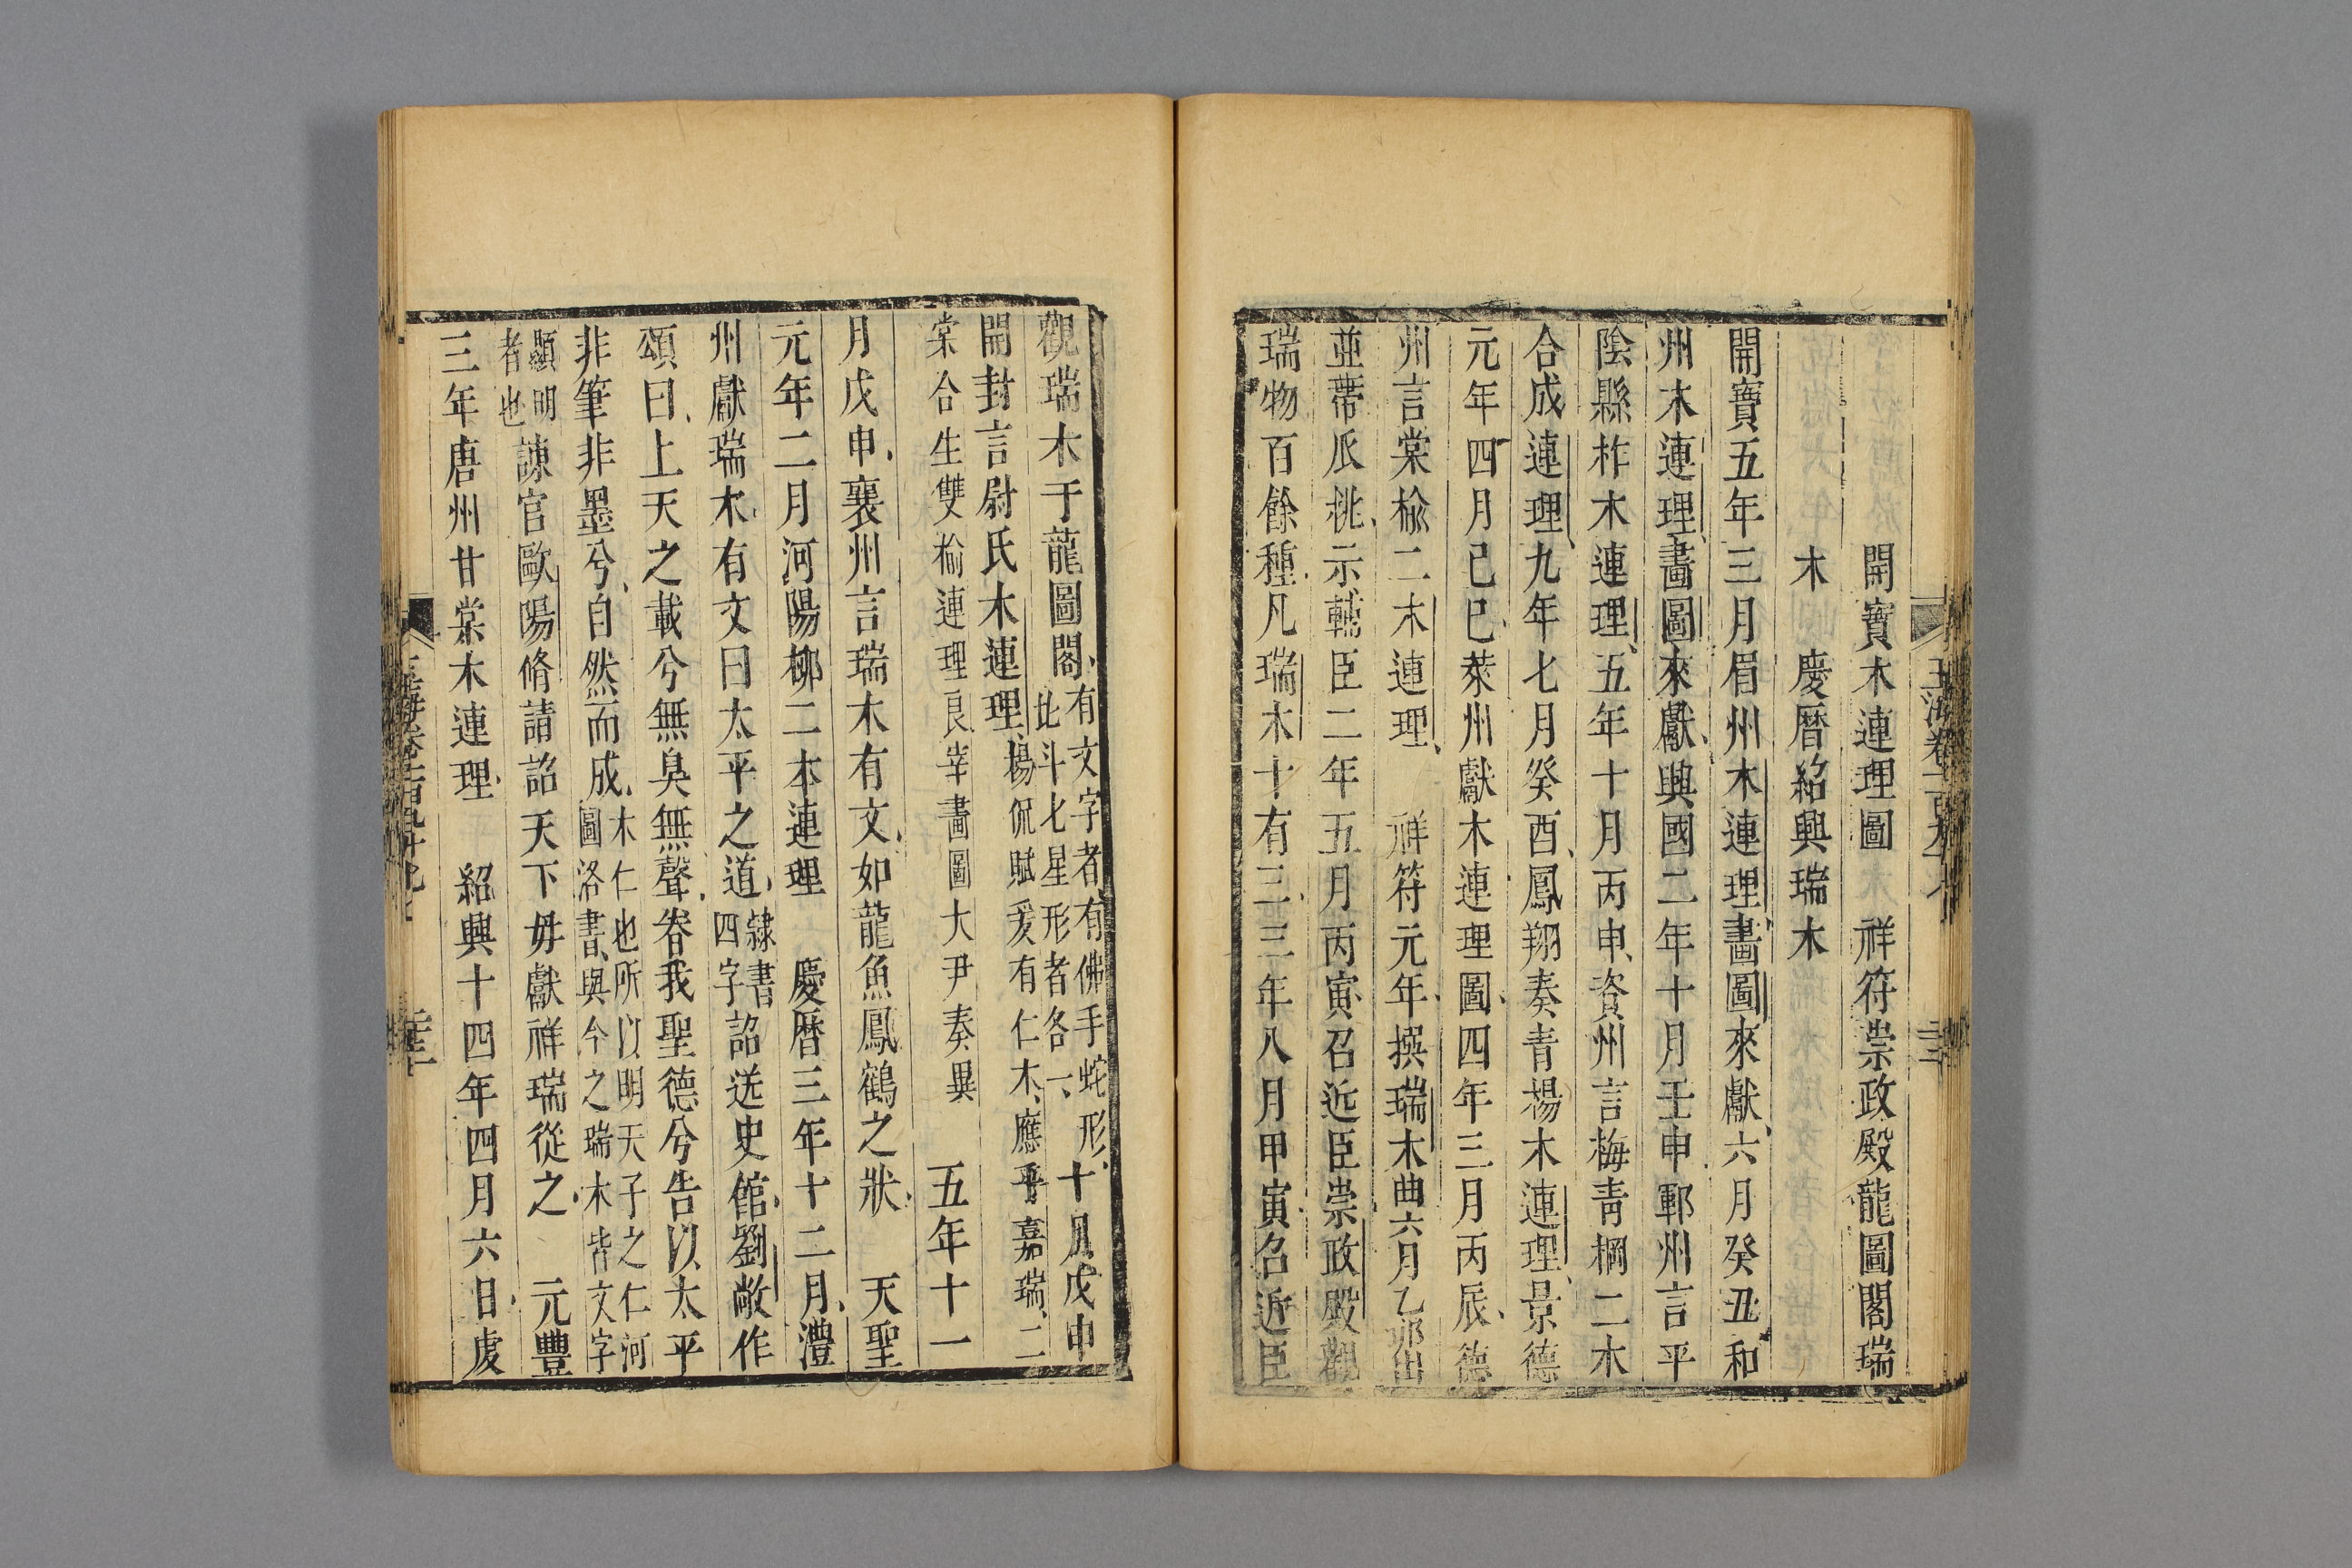 開寶木連理圖　祥符崇政殿龍圖閣瑞
木　慶曆紹興瑞木
開寶五年三月眉州木連理畫圖來獻六月癸丑和
州木連理畫圖來獻興國二年十月壬申鄆州言平
陰縣柞木連理五年十月丙申資州言梅青棡二木
合成連理九年七月癸酉鳳翔奏青楊木連理景德
元年四月己巳萊州獻木連理圖四年三月丙辰德
州言棠楡二木連理　祥符元年撰瑞木曲六月乙卯出
並蔕瓜桃示輔臣二年五月丙寅召近臣崇政殿觀
瑞物百餘種凡瑞木十有三三年八月甲寅召近臣
觀瑞木于龍圖閣有文字者有佛手蛇形
北斗七星形者各一十月戊申
開封言尉氏木連理楊侃賦爰有仁木應乎嘉瑞二
棠合生雙楡連理良宰畫圖大尹奏異　五年十一
月戊申襄州言瑞木有文如龍魚鳳鶴之狀　天聖
元年二月河陽柳二本連理　慶曆三年十二月澧
州獻瑞木有文曰太平之道隸書
四字詔送史館劉敞作
頌曰上天之載兮無臭無聲眷我聖德兮告以太平
非筆非墨兮自然而成木仁也所以明天子之仁河
圖洛書與今之瑞木皆文字
顯明
者也諫官歐陽脩請詔天下毋獻祥瑞從之　元豐
三年唐州甘棠木連理　紹興十四年四月六日虔